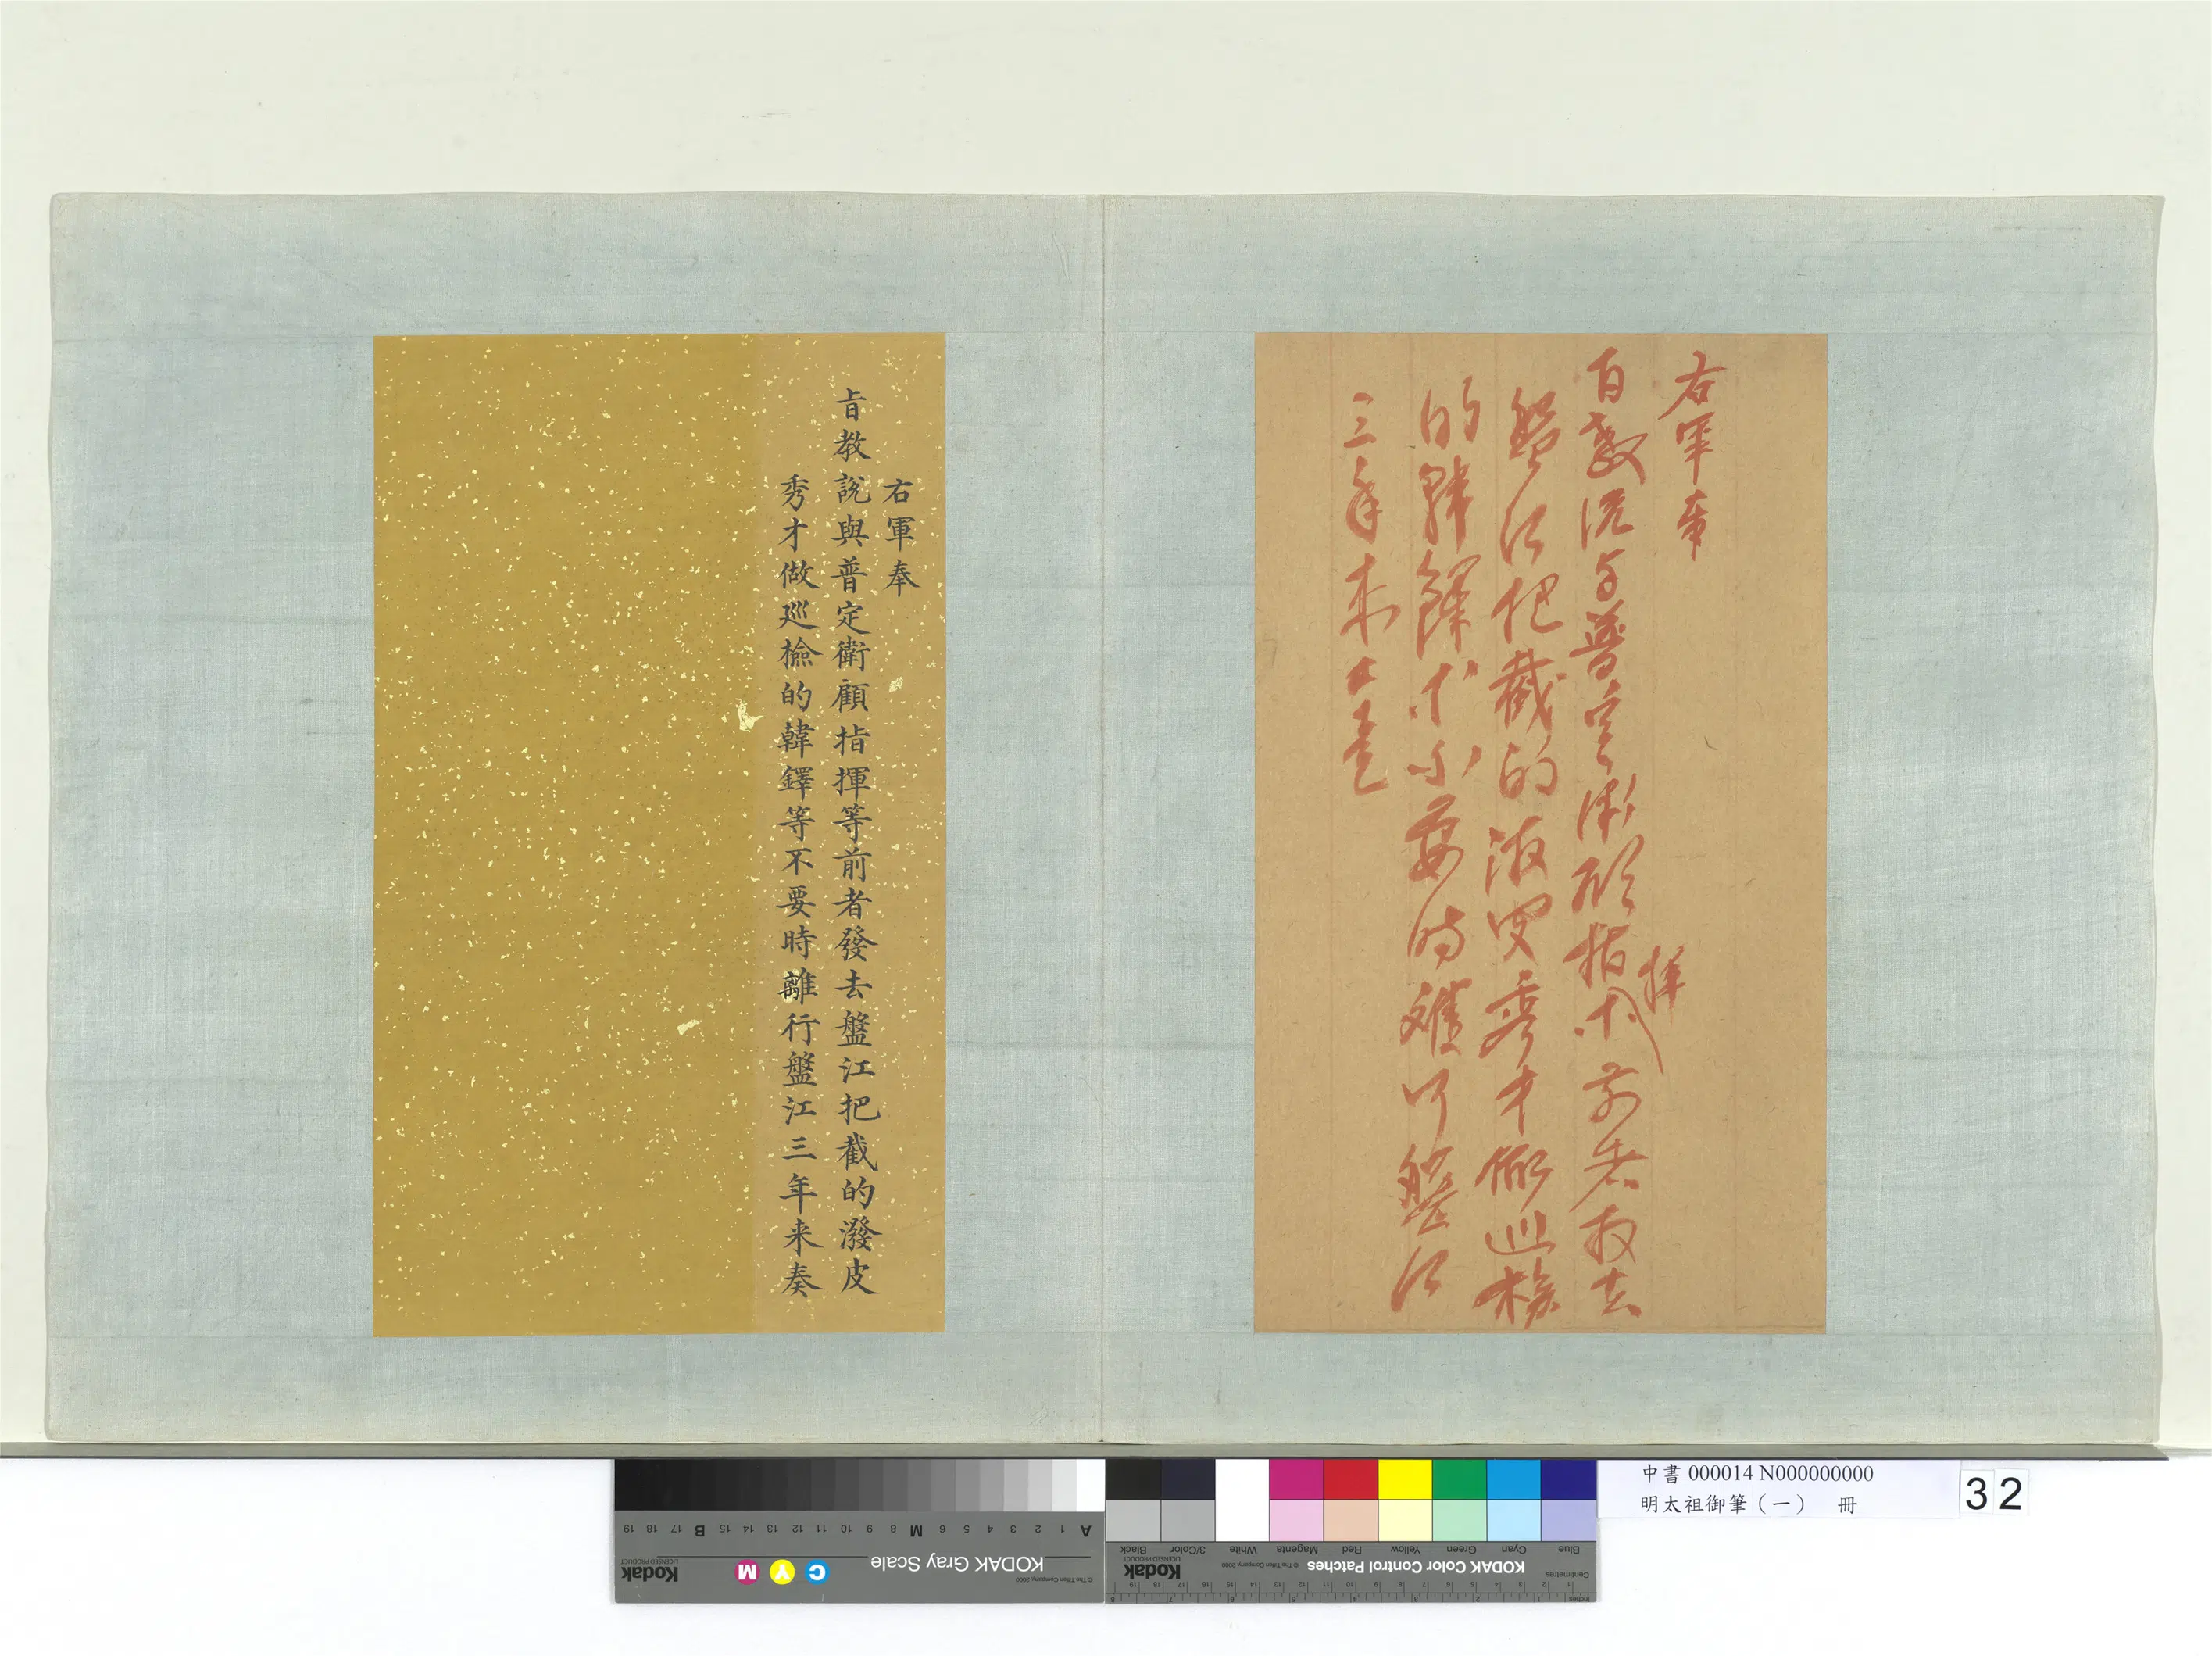 右軍奉
旨教説与普定衛顧指揮等前者發去
盤江把截的潑皮秀才做巡檢
的韓鐸等不要時離行盤江
三年来奏
右軍奉
旨教說與普定衛顧指揮等前者發去盤江把截的潑皮
秀才做廵檢的韓鐸等不要時離行盤江三年来奏
中書 000014 N000000000
明太祖御筆（一） 冊
32
KODAK Gray Scale
Kodak
LICENSED PRODUCT
© The Tiffen Company, 2000
C Y M
A 1 2 3 4 5 6 M 8 9 10 11 12 13 14 15 B 17 18 19
KODAK Color Control Patches
© The Tiffen Company, 2000
Kodak
LICENSED PRODUCT
Blue Cyan Green Yellow Red Magenta White 3/Color Black
Centimetres
Inches